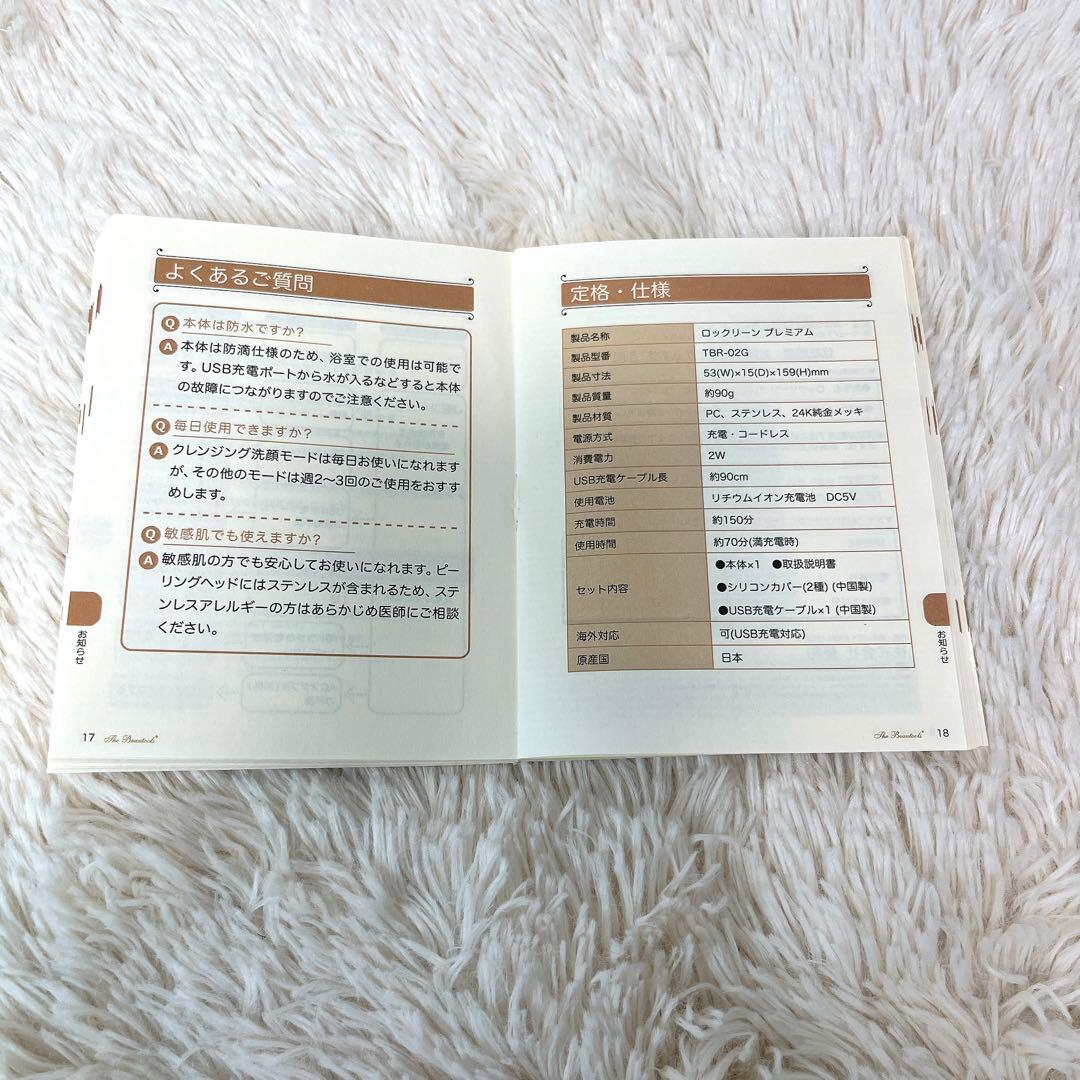 よくあるご質問
Q 本体は防水ですか?
A 本体は防滴仕様のため、浴室での使用は可能で
す。USB充電ポートから水が入るなどすると本体
の故障につながりますのでご注意ください。
Q 毎日使用できますか?
A クレンジング洗顔モードは毎日お使いになれます
が、その他のモードは週2〜3回のご使用をおすす
めします。
Q 敏感肌でも使えますか?
A 敏感肌の方でも安心してお使いになれます。ピー
リングヘッドにはステンレスが含まれるため、ステ
ンレスアレルギーの方はあらかじめ医師にご相談
ください。
お知らせ
17 The Beautools®
定格・仕様
製品名称 ロックリーン プレミアム
製品型番 TBR-02G
製品寸法 53(W)×15(D)×159(H)mm
製品質量 約90g
製品材質 PC、ステンレス、24K純金メッキ
電源方式 充電・コードレス
消費電力 2W
USB充電ケーブル長 約90cm
使用電池 リチウムイオン充電池 DC5V
充電時間 約150分
使用時間 約70分(満充電時)
セット内容 ●本体×1 ●取扱説明書
●シリコンカバー(2種) (中国製)
●USB充電ケーブル×1 (中国製)
海外対応 可(USB充電対応)
原産国 日本
お知らせ
The Beautools® 18